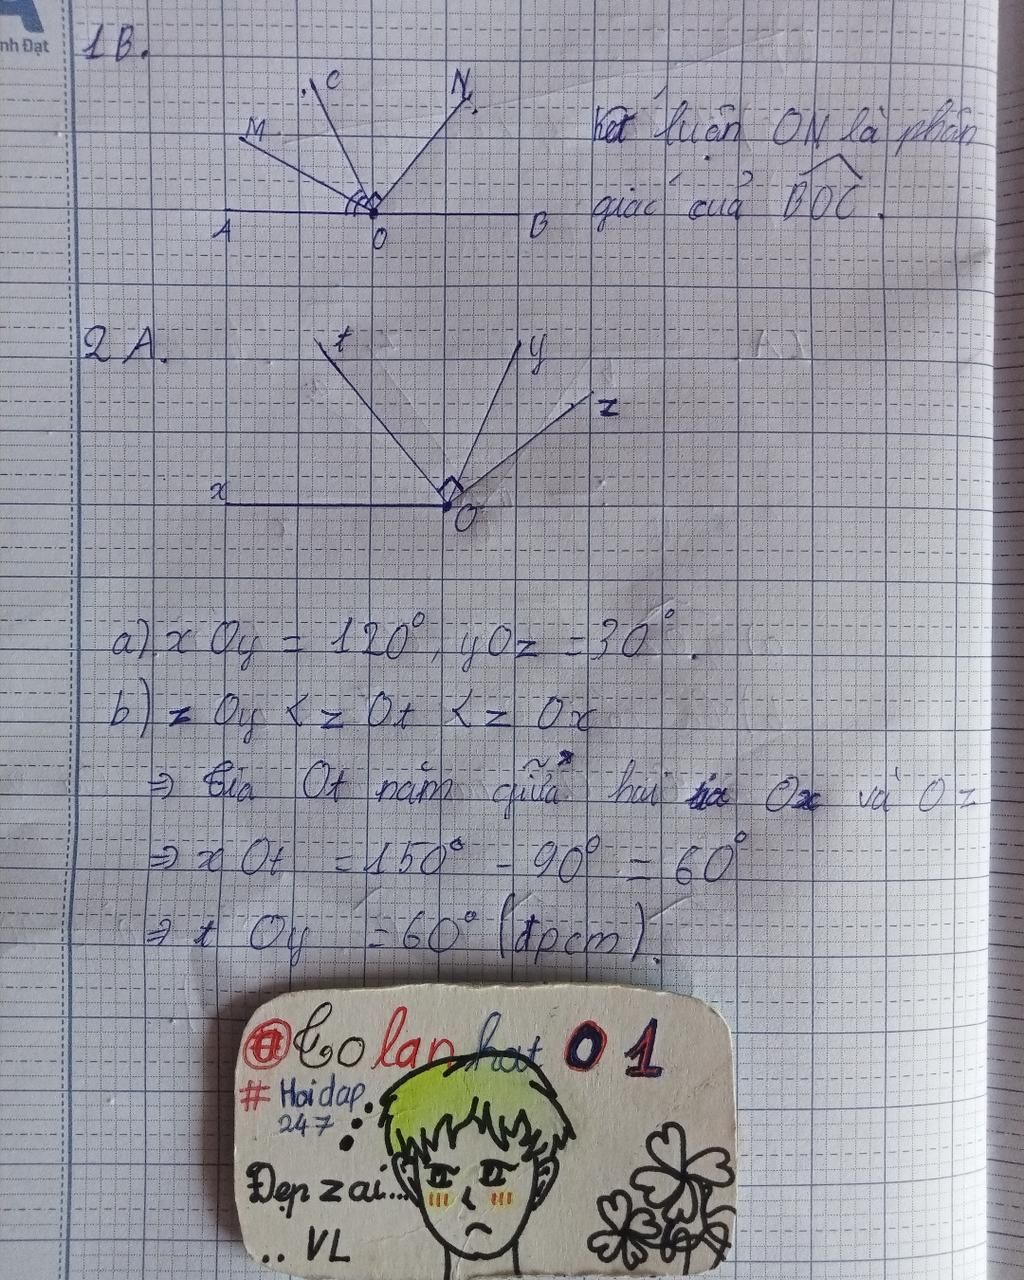 nh Đạt
1B.
C
N
M
A
O
B
Kết luận ON là phân
giác của BOC.
2A.
t
y
z
x
O
a) xOy = 120°, yOz = 30°.
b) zOy < zOt < zOx
⇒ tia Ot nằm giữa hai tia Ox và Oz
⇒ xOt = 150° - 90° = 60°
⇒ tOy = 60° (đpcm).
@tolanhat01
# Hoidap
247
Đẹp zai...
.. VL